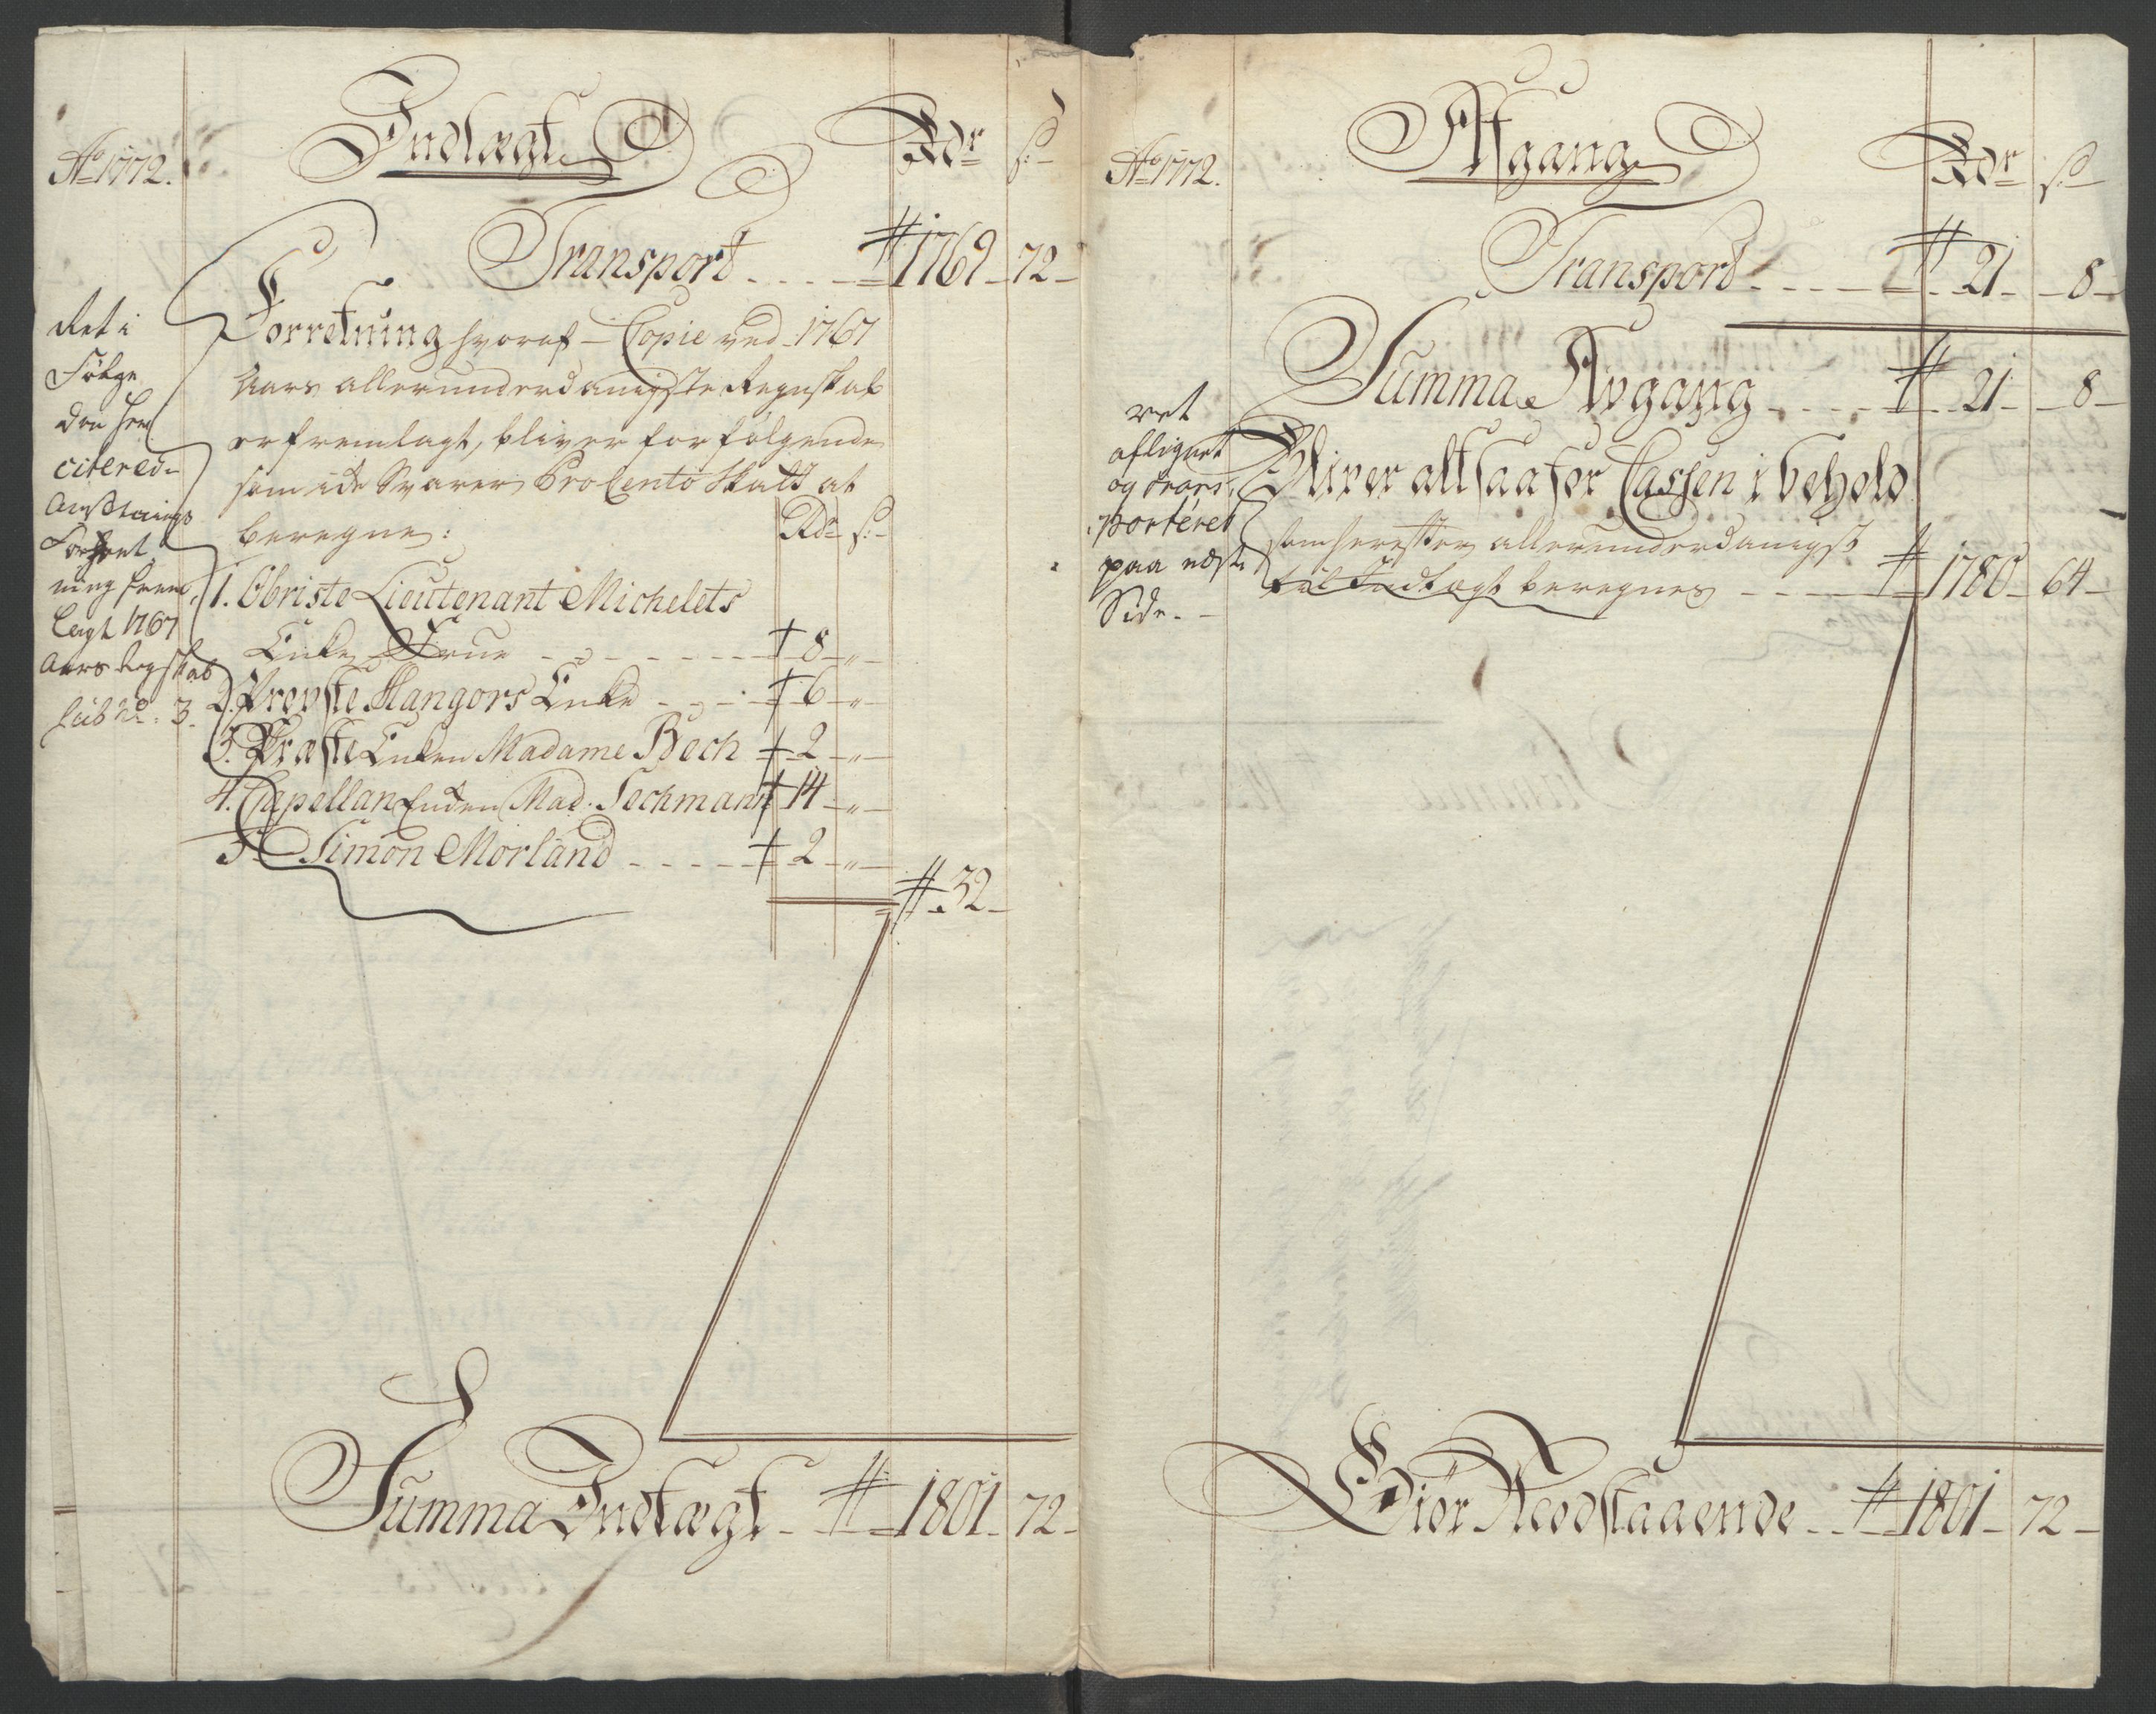 Ao 1772.
Indtægt
Rdr s:
Transport - - - - # 1769 - 72 -
Forretning hvoraf Copie ved 1767
Aars allerunderdanigste Regnskab
er fremlagt, bliver for følgende
som ide Svarer Procento Skatt at
beregne:
Rdr s:
1. Obriste Lieutenant Michelets
Enke Frue - - - - - - 8 - " -
2. Provste Mangors Enke - - - 6 - " -
3. Præste Enken Madame Bech 2 - " -
4. Capellan Enken Mad. Techmans 14 - " -
5. Simon Morland - - - - - 2 - " -
# 32 -
Summa Indtægt - # 1801 - 72 -
Ret i
Følge
den her
citerede
Ansætnings
Forret
ning frem
lagt 1767
Aars Regskab
sub No: 3.
Ao 1772.
Afgang
Rdr s:
Transport - - - - # 21 - 8 -
Summa Avgang - - - - # 21 - 8 -
Bliver altsaa for Cassen i behold
som herefter allerunderdanigst
til Indtægt beregnes - - - - # 1780 - 64 -
ret
aflignet
og trans,
porteret
paa næste
Side. -
Giør Neodstaaende - - # 1801 - 72 -